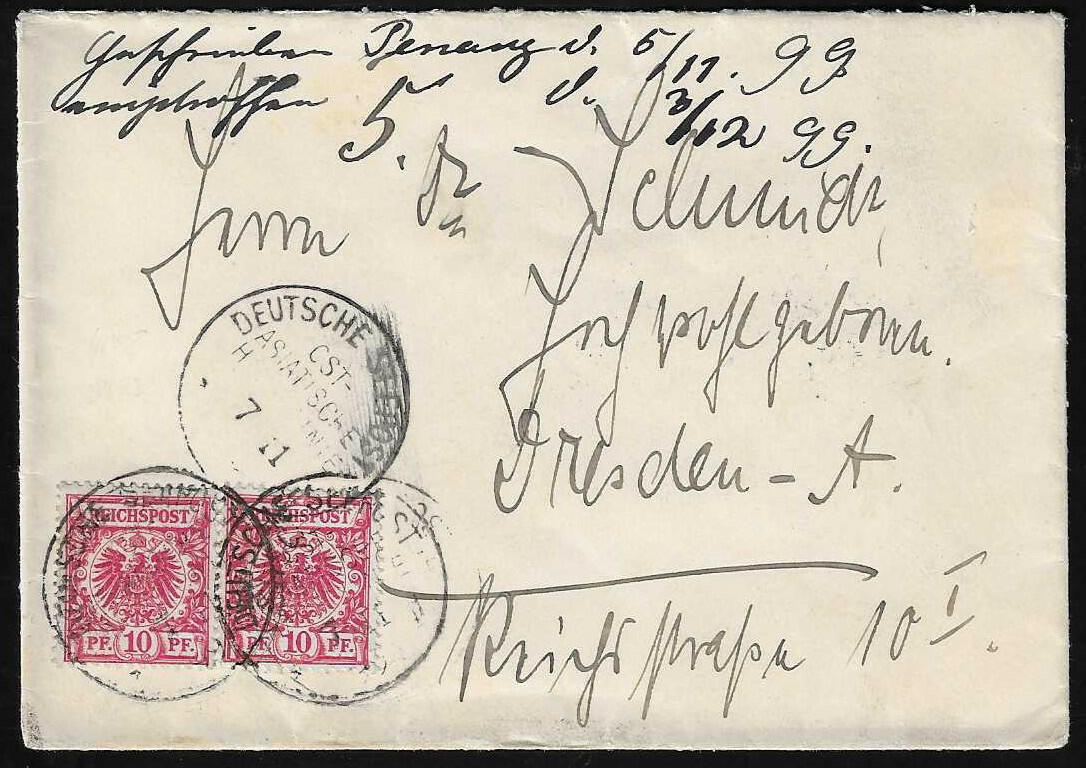 Geschrieben Penang d. 5/11. 99
eingetroffen d. 3/12 99.
5.
Herrn Dr Schmidt,
Hochwohlgeboren.
Dresden - A.
Reichsstraße 10 I.
DEUTSCHE SEEPOST
OST-
ASIATISCHE
H
7 11
REICHSPOST
PF. 10 PF.
REICHSPOST
PF. 10 PF.